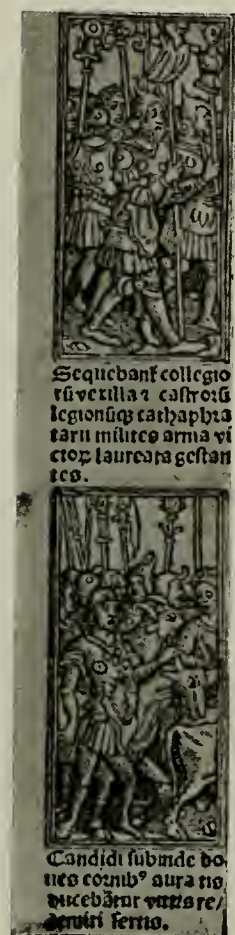 Sequebanť collegio
rū vexilla ⁊ castrorū
legionūqꝫ cathaphra
tarii milites arma vi
ctoꝝ laureara gestan
tes.
Candidi subinde bo
ues cornibꝰ aura tis
ducebātur vittis re/
dimiti sertis.